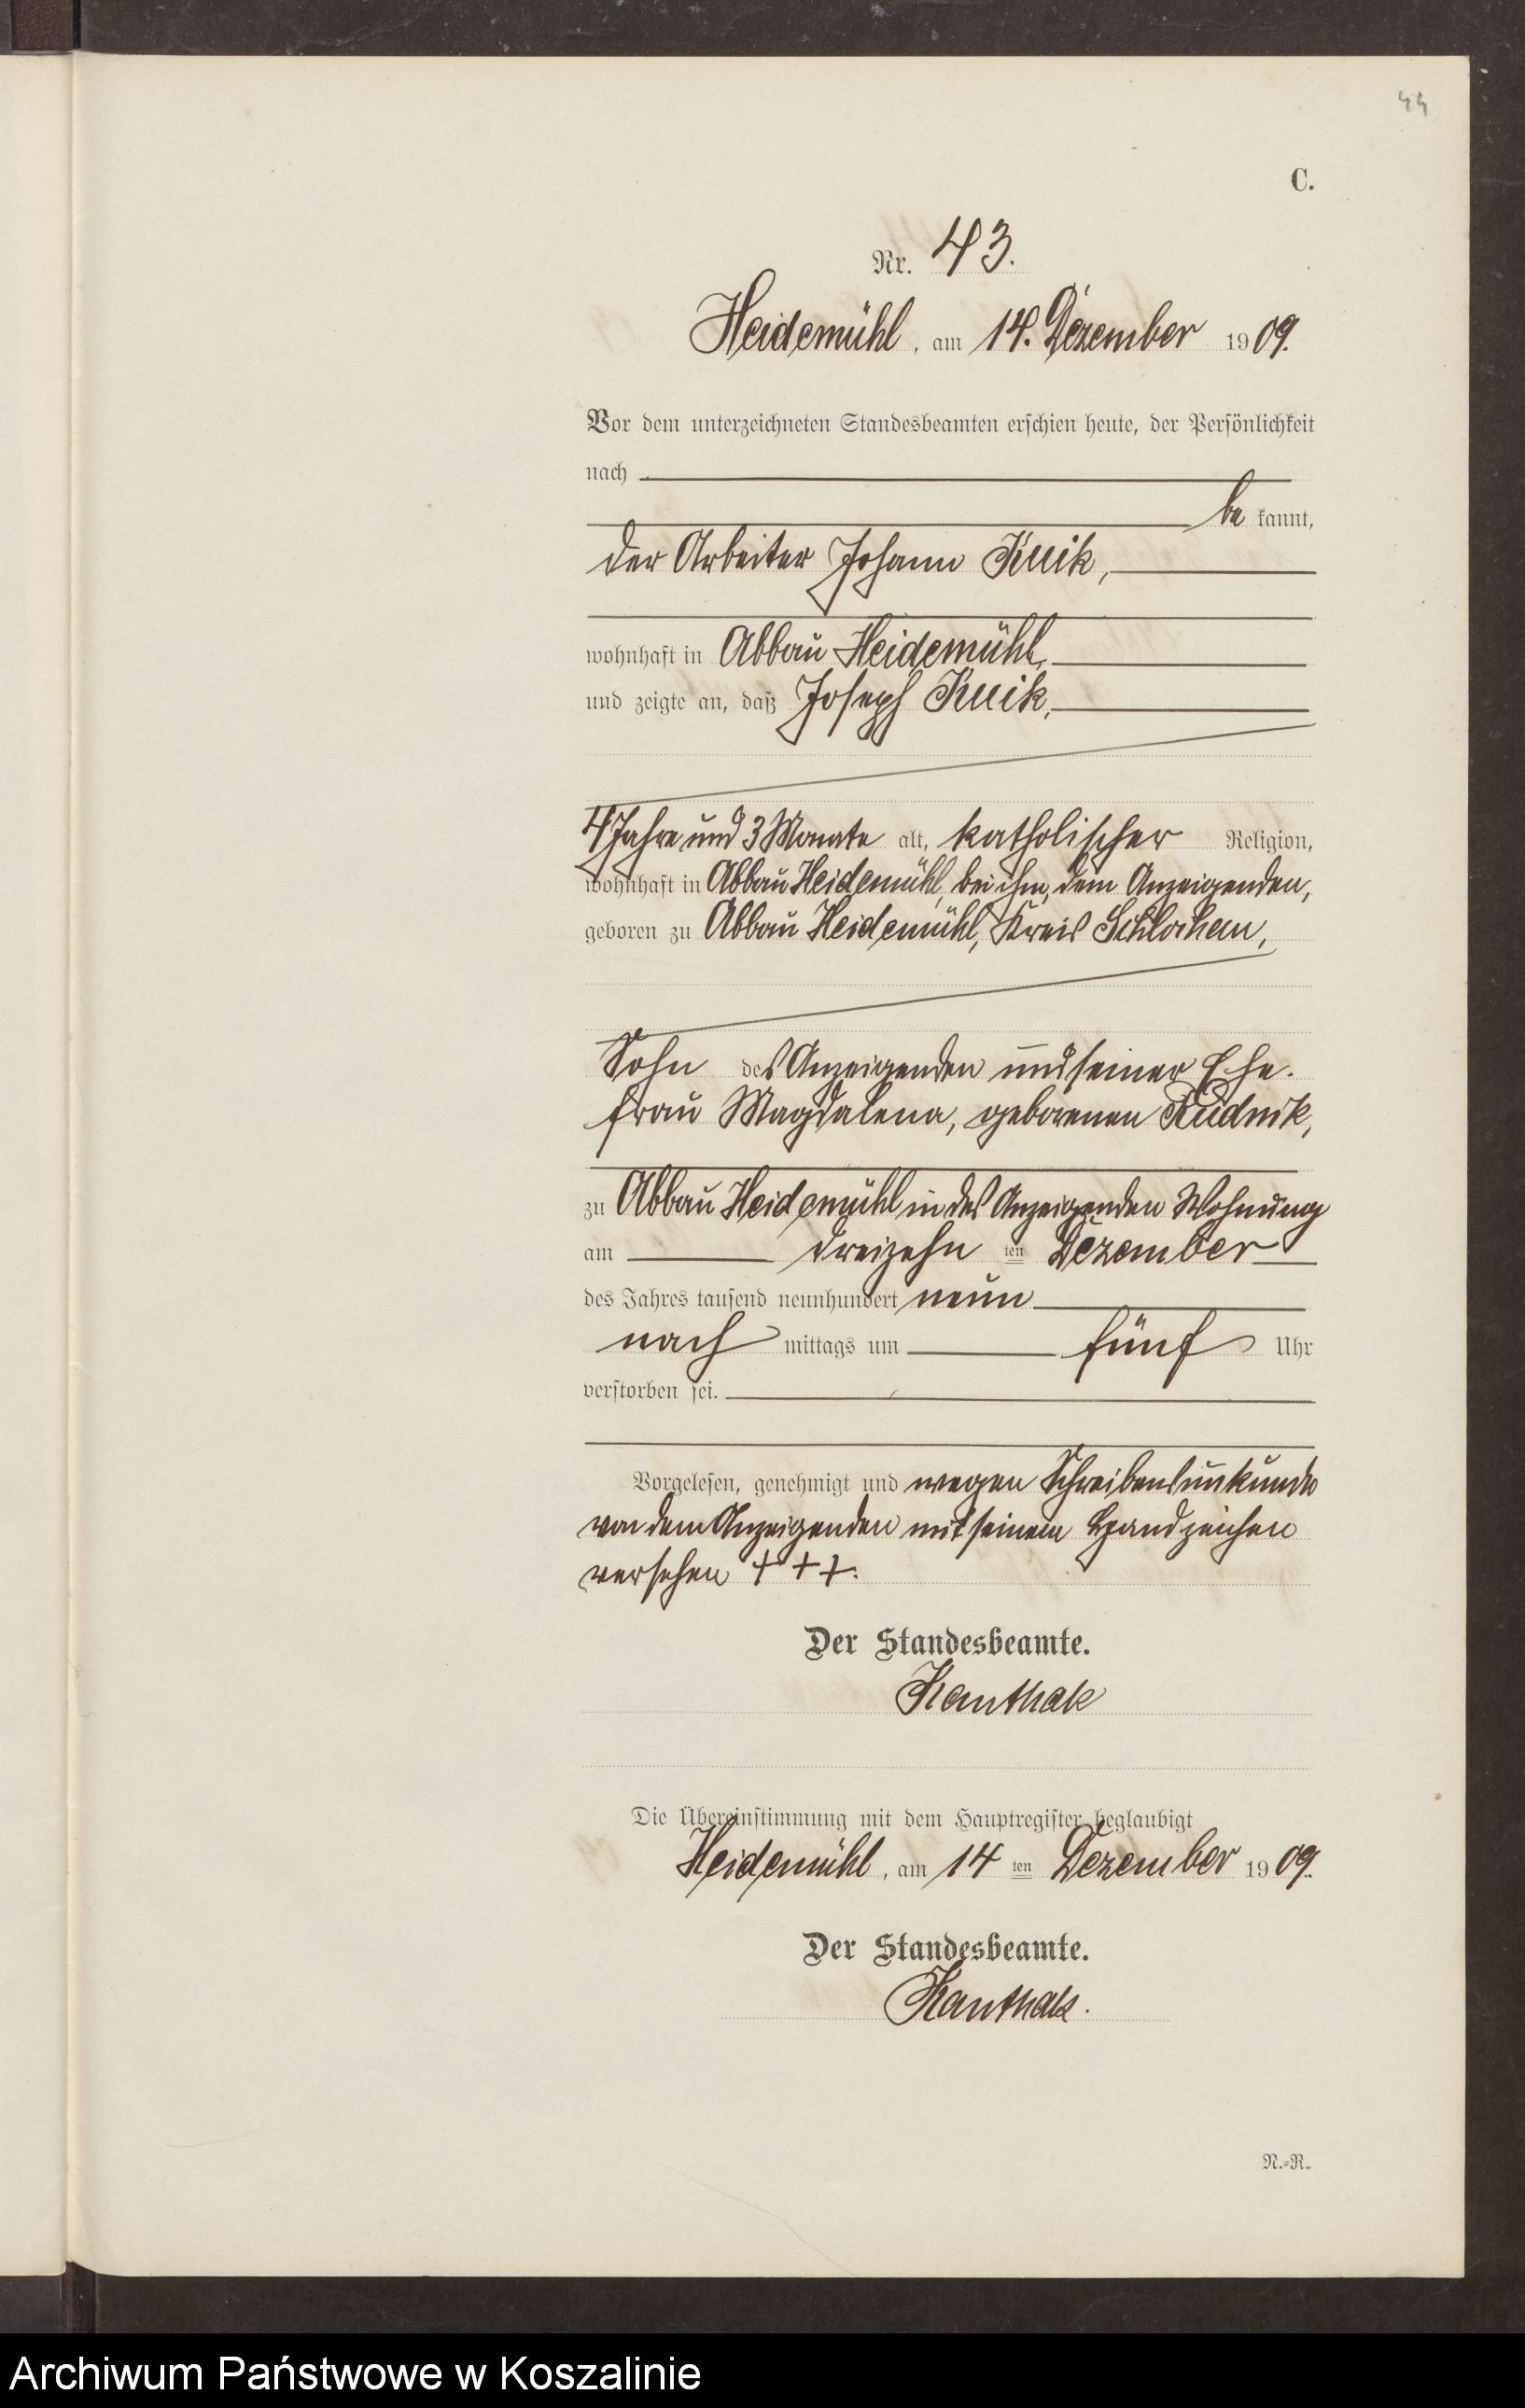 44
C.
Nr. 43.
Heidemühl, am 14. Dezember 1909.
Vor dem unterzeichneten Standesbeamten erschien heute, der Persönlichkeit
nach
be kannt,
der Arbeiter Johann Kuik,
wohnhaft in Abbau Heidemühl,
und zeigte an, daß Joseph Kuik,
4 Jahre und 3 Monate alt, katholischer Religion,
wohnhaft in Abbau Heidemühl, bei ihm, dem Anzeigenden,
geboren zu Abbau Heidemühl, Kreis Schlochau,
Sohn des Anzeigenden und seiner Ehe-
frau Magdalena, geborenen Rudnik,
zu Abbau Heidemühl in des Anzeigenden Wohnung
am dreizehn ten Dezember
des Jahres tausend neunhundert neun
nach mittags um fünf Uhr
verstorben sei.
Vorgelesen, genehmigt und wegen Schreibensunkunde
von dem Anzeigenden mit seinem Handzeichen
versehen + + +.
Der Standesbeamte.
Kanthak
Die Übereinstimmung mit dem Hauptregister beglaubigt
Heidemühl, am 14 ten Dezember 1909.
Der Standesbeamte.
Kanthak.
N.-R.
Archiwum Państwowe w Koszalinie